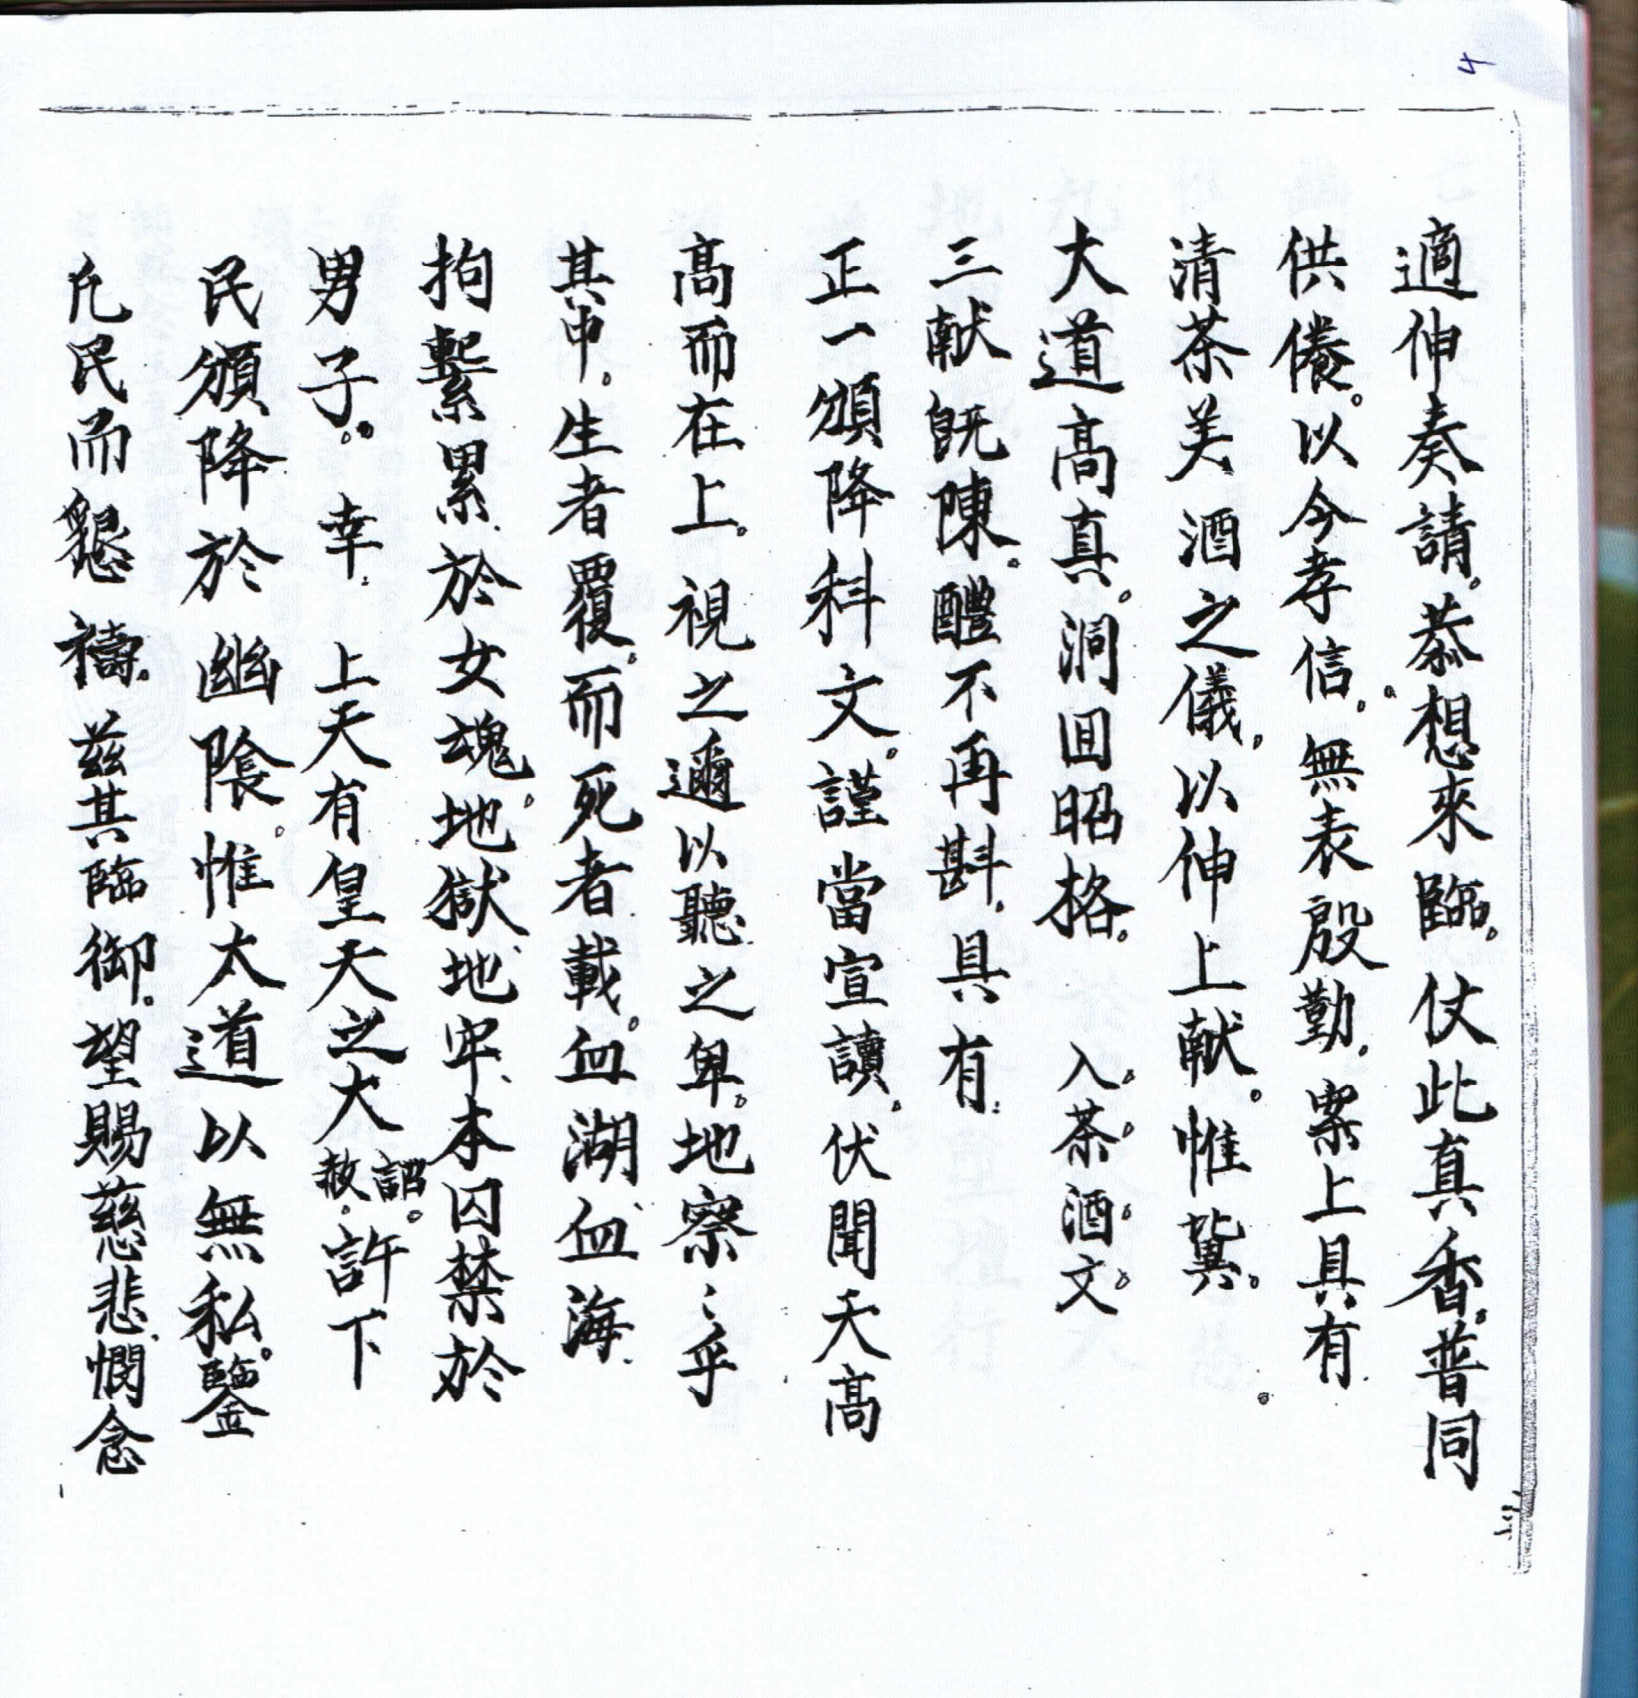 4
適伸奏請。恭想來臨。仗此真香。普同
供養。以今孝信。無表殷勤。案上具有
清茶美酒之儀。以伸上献。惟冀。
大道高真。洞回昭格。入茶酒文。
三献既陳。醴不再斟。具有
正一頒降科文。謹當宣讀。伏聞天高
高而在上。視之邇以聽之卑。地察〻乎
其中。生者覆。而死者載。血湖血海
拘繫累於女魂。地獄地牢。本囚禁於
男子。幸 上天有皇天之大詔赦。許下
民頒降於幽陰。惟太道以無私。鑒
凢民而懇禱。茲其臨御。望賜慈悲憫念